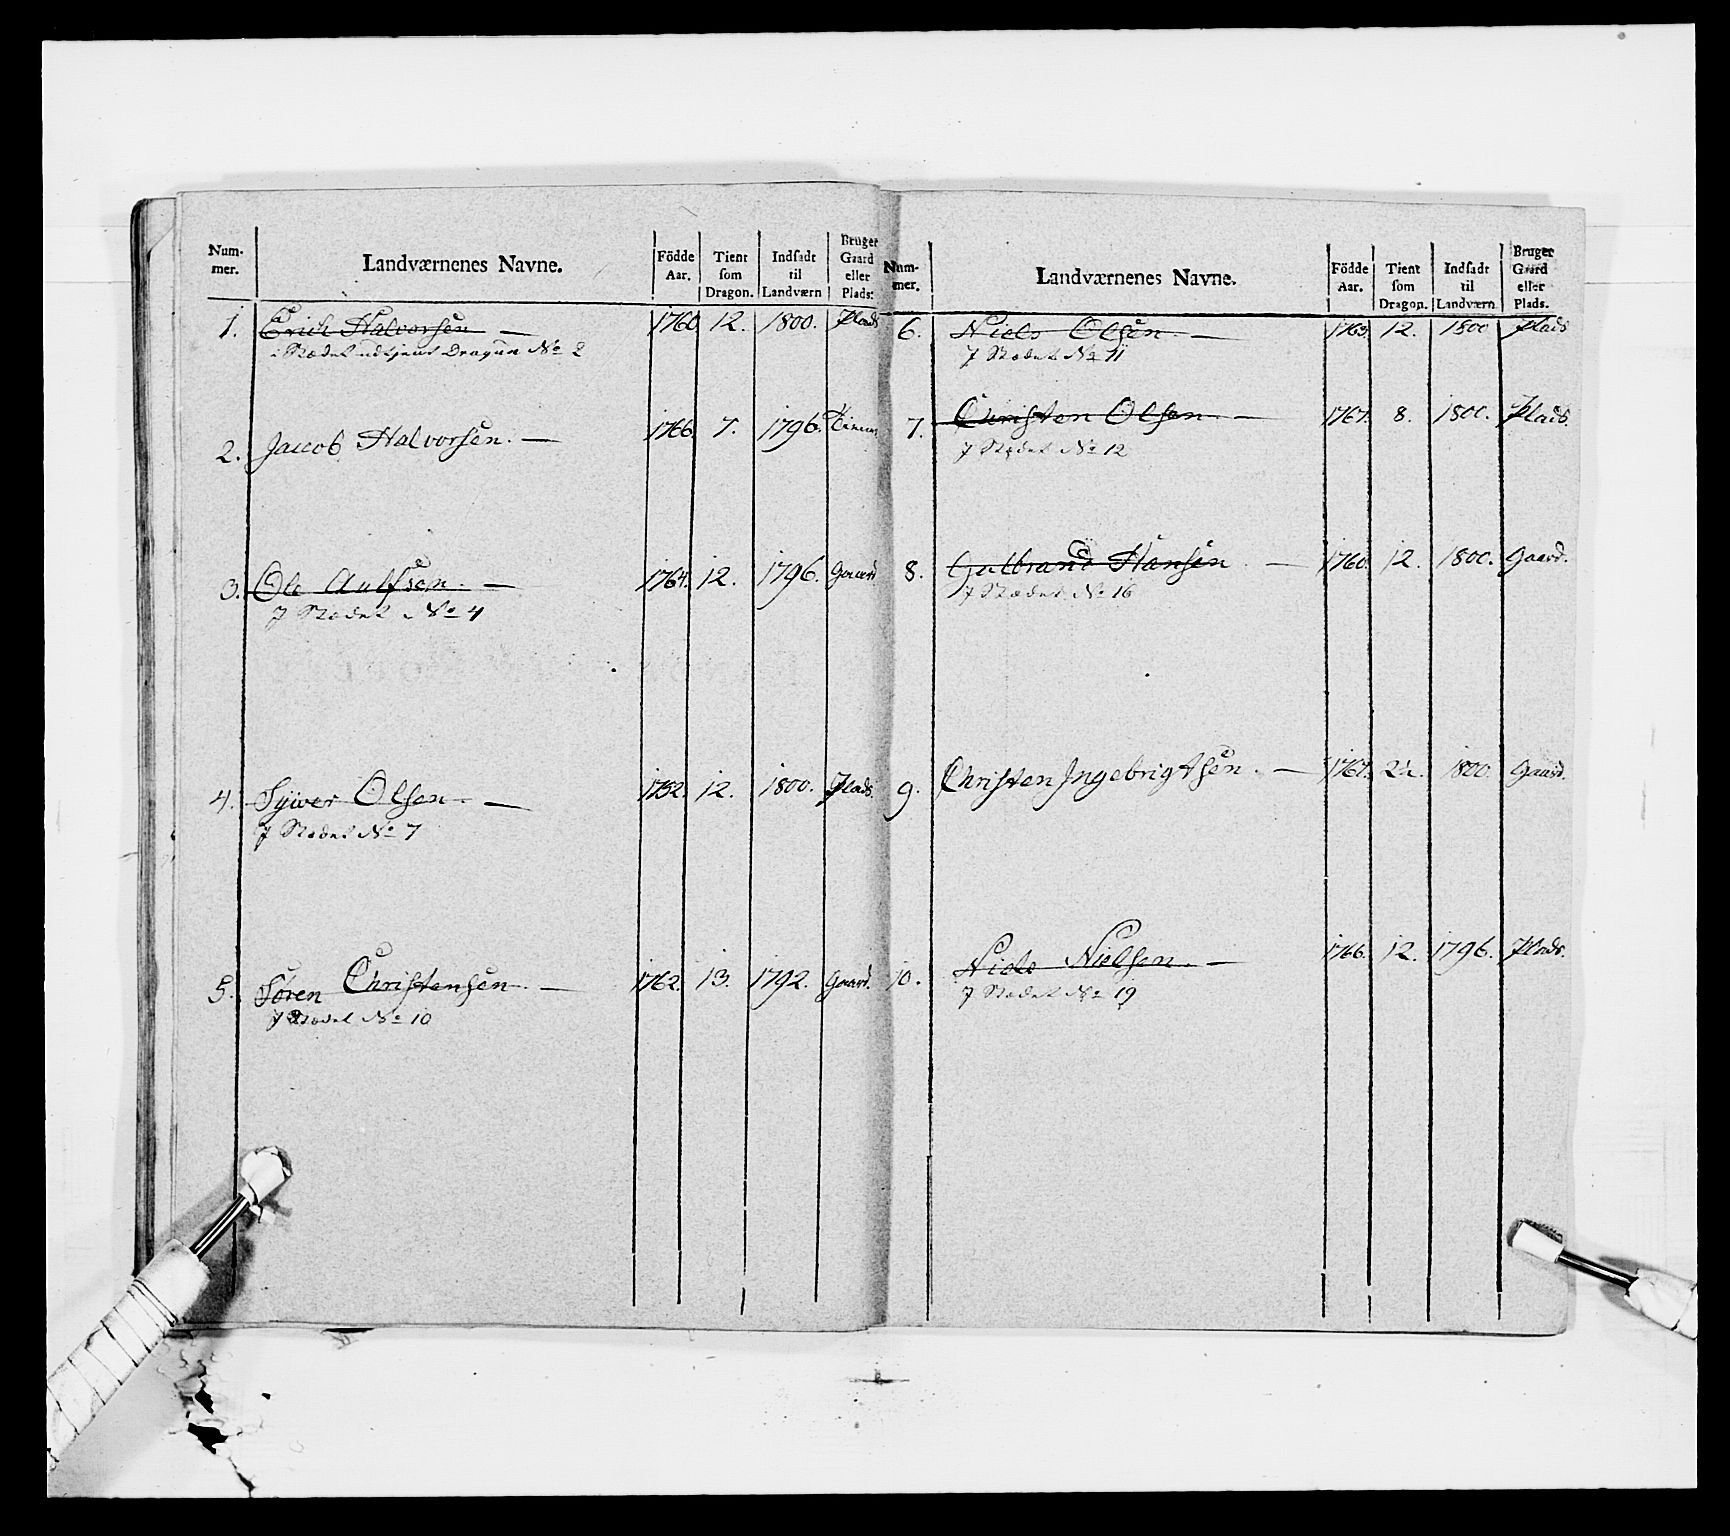 Num-
mer.
Landværnenes Navne.
Födde
Aar.
Tient
som
Dragon.
Indsadt
til
Landværn
Bruger
Gaard
eller
Plads:
1. Erich Halvorsen. — 1760 12. 1800. Plads
i Stædet udtjent Dragun No 2
2. Jaccob Halvorsen. — 1766. 7. 1796.
3. Ole — 1764. 12. 1796. Gaard
J Stædet No 4
4. Syver Olsen. — 1752. 12. 1800. Plads.
J Stædet No 7
5. Sören Christensen. — 1762. 13. 1792. Gaard.
J Stædet No 10
Num-
mer.
Landværnenes Navne.
Födde
Aar.
Tient
som
Dragon.
Indsadt
til
Landværn
Bruger
Gaard
eller
Plads.
6. Niels Olsen. — 1763. 12. 1800 Plads
J Stædet No 11
7. Christen Olsen — 1767. 8. 1800. Plads.
J Stædet No 12
8. Gulbrand Hansen. — 1760. 12. 1800. Gaard.
J Stædet No 16
9. Christen Ingebrigtsen. — 1767. 1800. Gaard.
10. Niels Nielsen. — 1766. 12. 1796. Plads.
J Stædet No 19